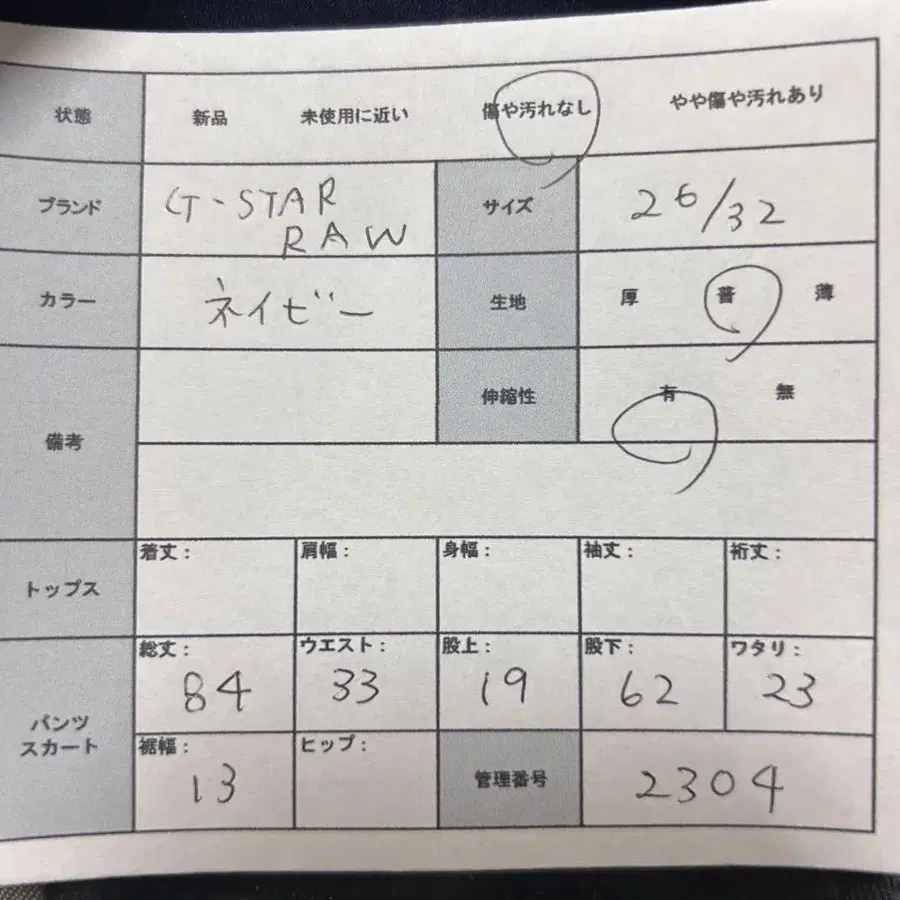 状態 新品 未使用に近い 傷や汚れなし やや傷や汚れあり
ブランド G-STAR RAW サイズ 26/32
カラー ネイビー 生地 厚 普 薄
備考 伸縮性 有 無
トップス 着丈： 肩幅： 身幅： 袖丈： 裄丈：
パンツ スカート 総丈： ウエスト： 股上： 股下： ワタリ：
84 33 19 62 23
裾幅： ヒップ： 管理番号 2304
13